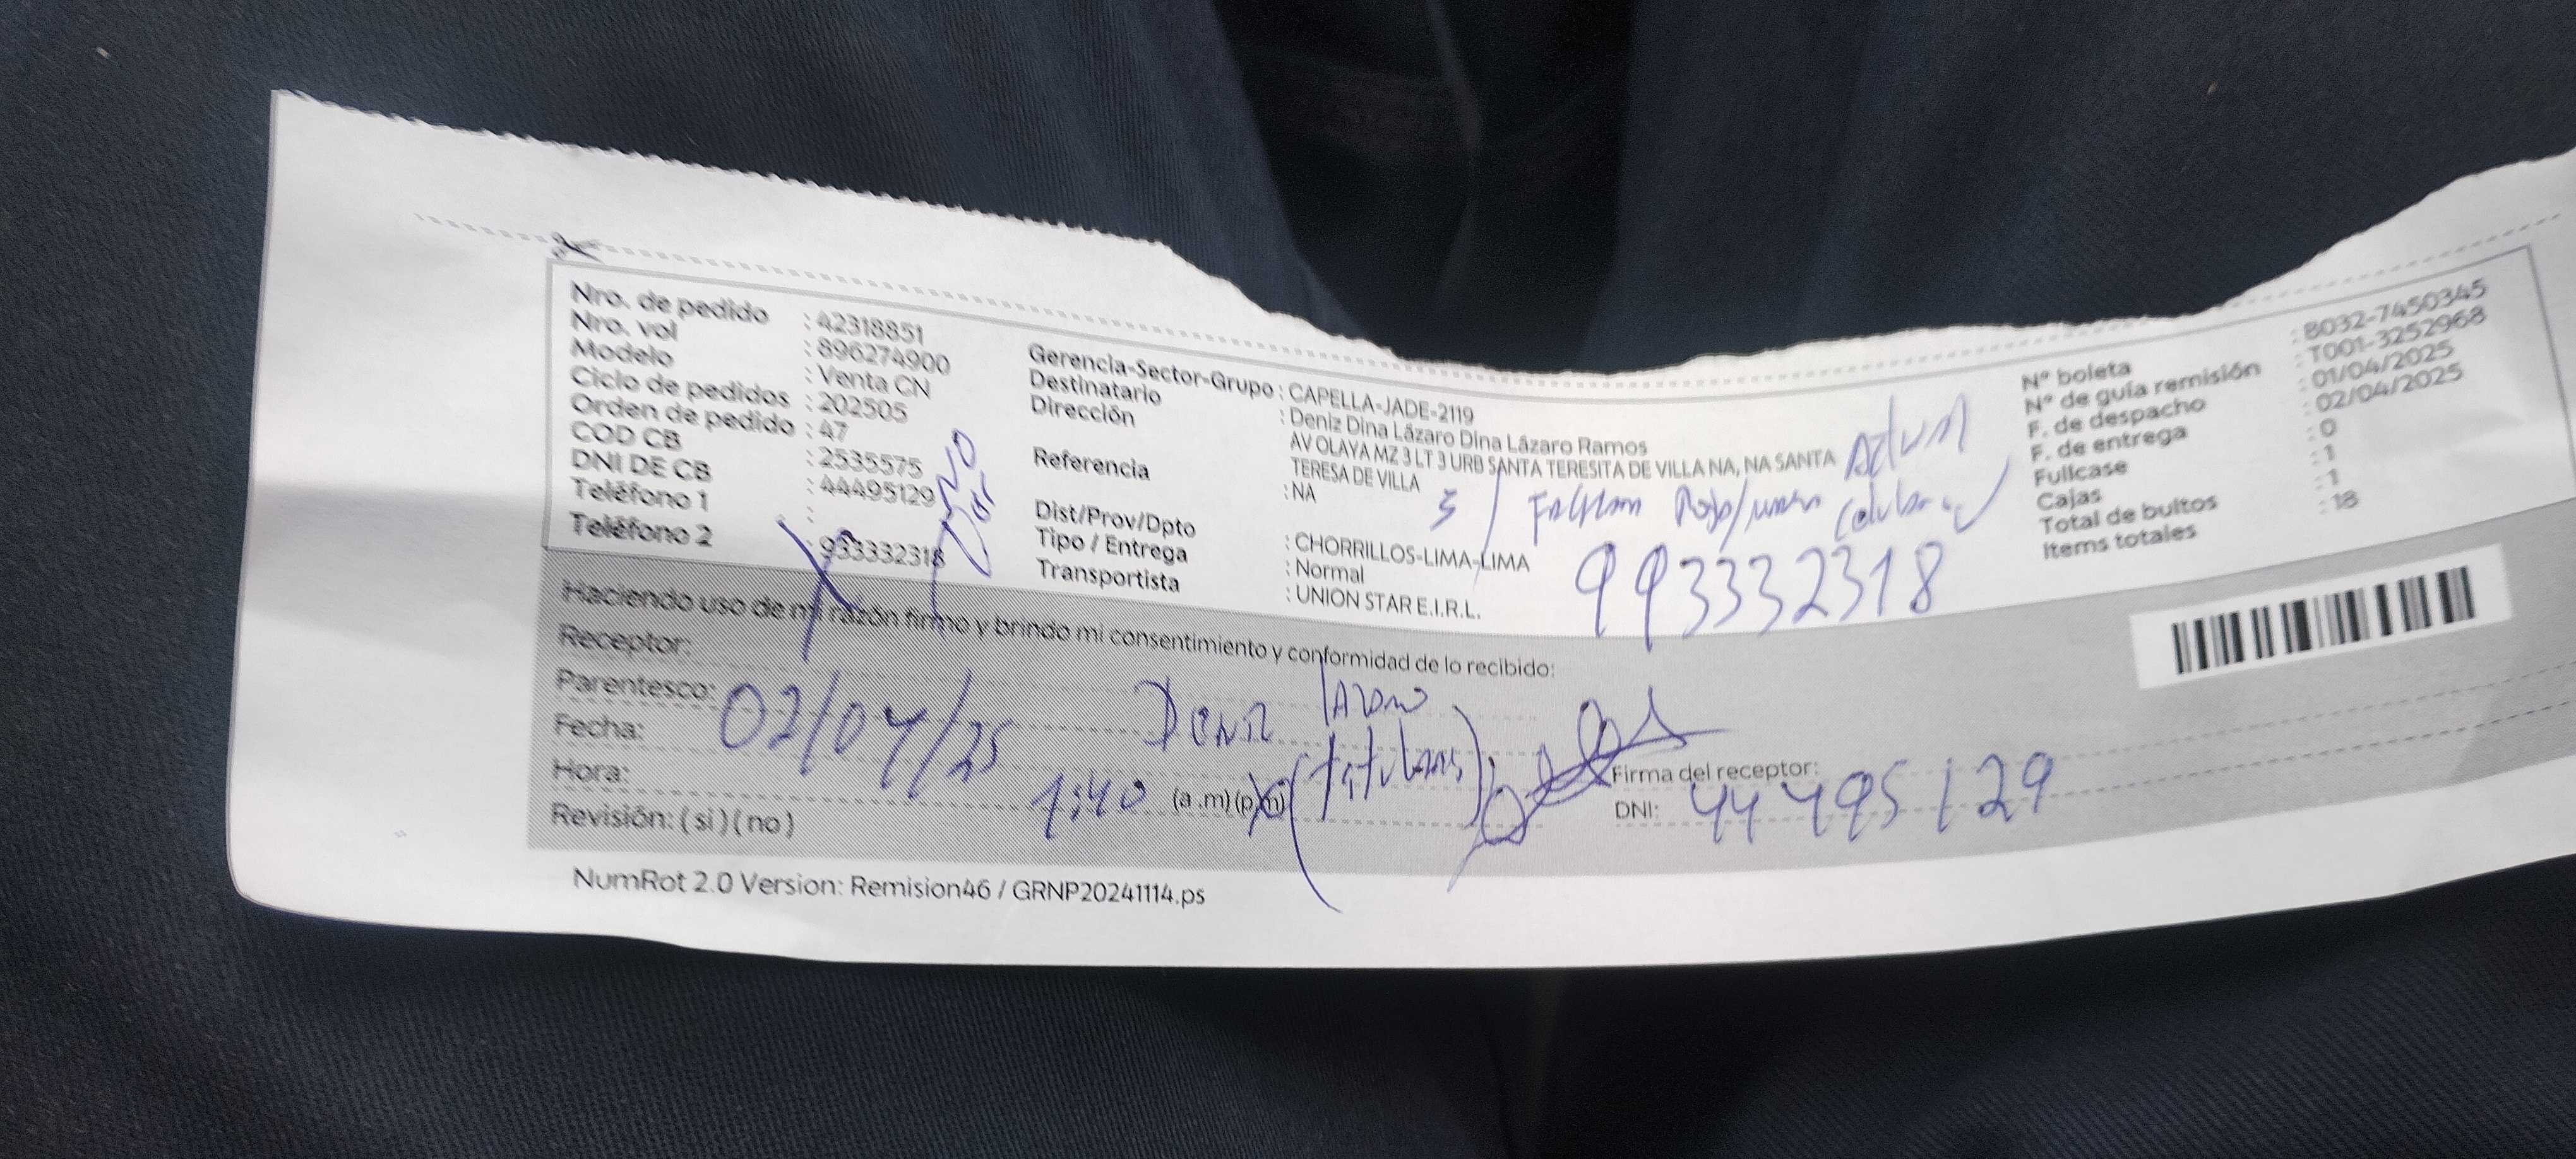 Nro. de pedido : 42318851
Nro. vol : 896274900
Modelo : Venta CN
Ciclo de pedidos : 202505
Orden de pedido : 47
COD CB : 2535575
DNI DE CB : 44495129
Teléfono 1 :
Teléfono 2 : 933332318
NO
Gerencia-Sector-Grupo : CAPELLA-JADE-2119
Destinatario : Deniz Dina Lázaro Dina Lázaro Ramos
Dirección AV OLAYA MZ 3 LT 3 URB SANTA TERESITA DE VILLA NA, NA SANTA
TERESA DE VILLA
Referencia : NA
Dist/Prov/Dpto : CHORRILLOS-LIMA-LIMA
Tipo / Entrega : Normal
Transportista : UNION STAR E.I.R.L.
993332318
N° boleta : B032-7450345
N° de guía remisión : T001-3252968
F. de despacho : 01/04/2025
F. de entrega : 02/04/2025
Fullcase : 0
Cajas : 1
Total de bultos : 1
Items totales : 18
Haciendo uso de mi razón firmo y brindo mi consentimiento y conformidad de lo recibido:
Receptor:
Parentesco:
Fecha: 02/04/25
Hora: 1:40 (a .m)(p.m)
Revisión: ( si ) ( no )
Firma del receptor:
DNI: 44495129
NumRot 2.0 Version: Remision46 / GRNP20241114.ps